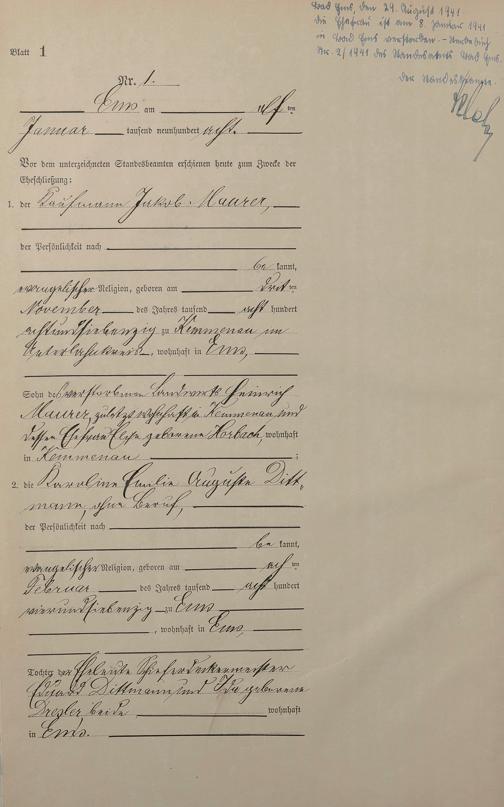 Bad Ems, den 29. August 1941
die Ehefrau ist am 8. Januar 1941
in Bad Ems verstorben. - Sterbebuch
Nr. 2/1941 des Standesamts Bad Ems.
der Standesbeamte.
Blatt 1
Nr. 1.
Ems am elften
Januar tausend neunhundert acht.
Vor dem unterzeichneten Standesbeamten erschienen heute zum Zwecke der
Eheschließung:
1. der Kaufmann Jakob Maurer,
der Persönlichkeit nach
be kannt,
evangelischer Religion, geboren am dritten
November des Jahres tausend acht hundert
achtundsiebenzig zu Kemmenau im
Unterlahnkreis, wohnhaft in Ems,
Sohn des verstorbenen Landwirts Heinrich
Maurer, zuletzt wohnhaft in Kemmenau und
dessen Ehefrau geborene Horbach, wohnhaft
in Kemmenau ;
2. die Karoline Emilie Auguste Ditt-
mann, ohne Beruf,
der Persönlichkeit nach
be kannt,
evangelischer Religion, geboren am achten
Februar des Jahres tausend acht hundert
vierundsiebenzig zu Ems
, wohnhaft in Ems,
Tochter der Eheleute Schieferdeckermeister
Eduard Dittmann und Ida geborene
Dresler, beide wohnhaft
in Ems.